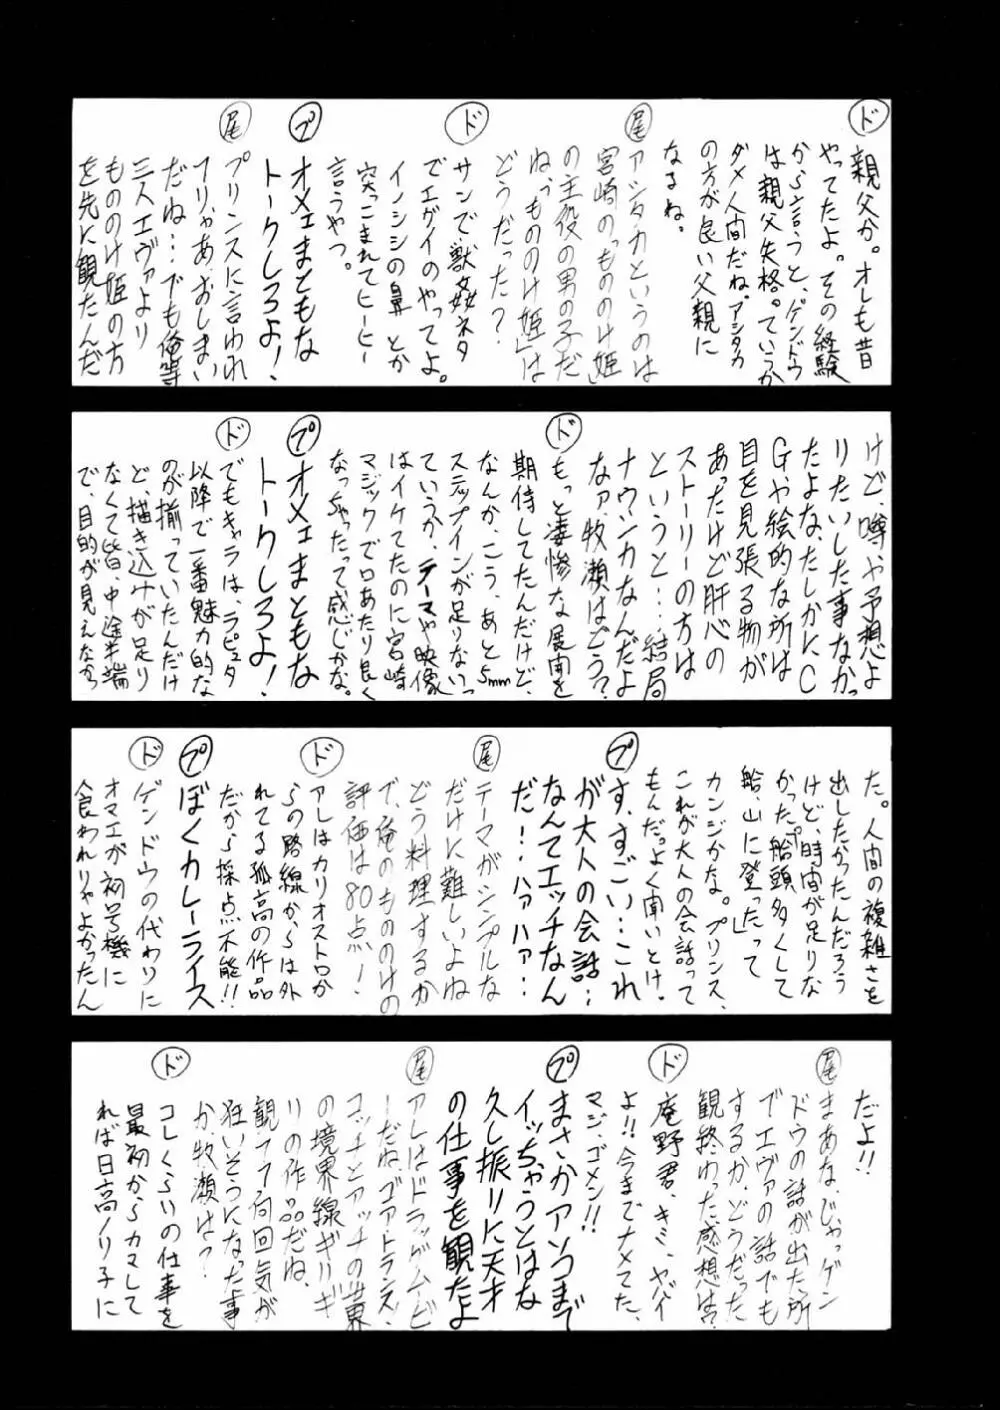 ド
親父か。オレも昔
やってたよ。その経験
から言うと、ゲンドウ
は親父失格。ていうか
ダメ人間だね。アシタカ
の方が良い父親に
なるね。
尾
アシタカというのは
宮崎の「もののけ姫」
の主役の男の子だ
ね。「もののけ姫」は
どうだった?
ド
サンで獣姦ネタ
でエグイのやってよ。
イノシシの鼻とか
突っこまれてヒーヒー
言うやつ。
プ
オメェまともな
トークしろよ!
尾
プリンスに言われ
フリャあ、おしまい
だね…でも俺等
三人エヴァより
もののけ姫の方
を先に観たんだ
けど、噂や予想よ
りたいした事なかっ
たよな。たしかにC
G.や絵的な所は
目を見張る物が
あったけど肝心の
ストーリーの方は
というと…結局
ナウシカなんだよ
なァ、牧瀬はどう?
ド
もっと凄惨な展開を
期待してたんだけど、
なんか、こう、あと5mm
ステップインが足りないっ
ていうか、テーマや映像
はイケてたのに宮崎
マジックで口あたり良く
なっちゃったって感じかな。
プ
オメェまともな
トークしろよ!
ド
でもキャラは、ラピュタ
以降で一番魅力的な
のが揃っていたんだけ
ど、描き込みが足り
なくて皆、中途半端
で、目的が見えなかっ
た。人間の複雑さを
出したかったんだろう
けど、時間が足りな
かった。「船頭多くして
船、山に登った」って
カンジかな。プリンス、
これが大人の会話って
もんだっよく聞いとけ。
プ
す、すごい…これ
が大人の会話…
なんてエッチなん
だ!…ハァハァ…
尾
テーマがシンプルな
だけに難しいよね
どう料理するか
で、俺のもののけの
評価は80点!
ド
アレはカリオストロか
らの路線からは外
れてる孤高の作品
だから採点不能!!
プ
ぼくカレーライス
ド
ゲンドウの代わりに
オマエが初号機に
食われりゃよかったん
だよ!!
尾
まあな、じゃっゲン
ドウの話が出た所
でエヴァの話でも
するか、どうだった
観終わった感想は?
ド
庵野君、きミ、ヤバイ
よ!!今までナメてた、
マジ、ゴメン!!
プ
まさかアソコまで
イッちゃうとはな
久し振りに天才
の仕事を観たよ
尾
アレはドラッグムービ
ーだね、ゴアトランス、
コッチとアッチの世界
の境界線ギリギ
リの作品だね。
観フフ何回気が
狂いそうになった事
か、牧瀬は?
ド
コレくらいの仕事を
最初からカマして
れば日高ノリ子に